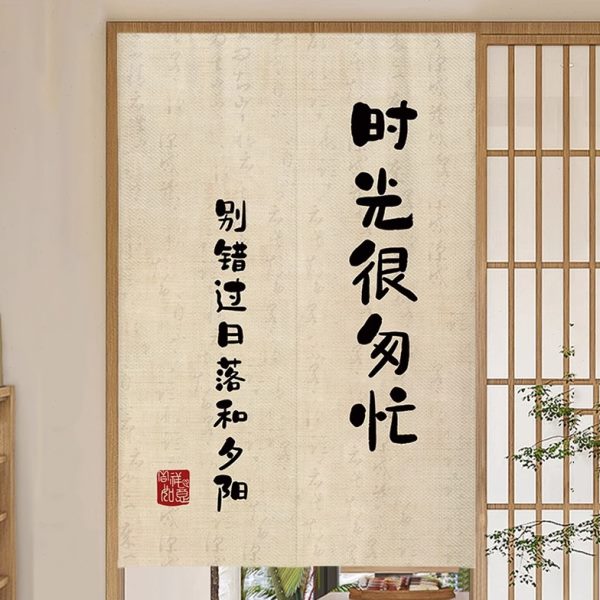 时光很匆忙
别错过日落和夕阳